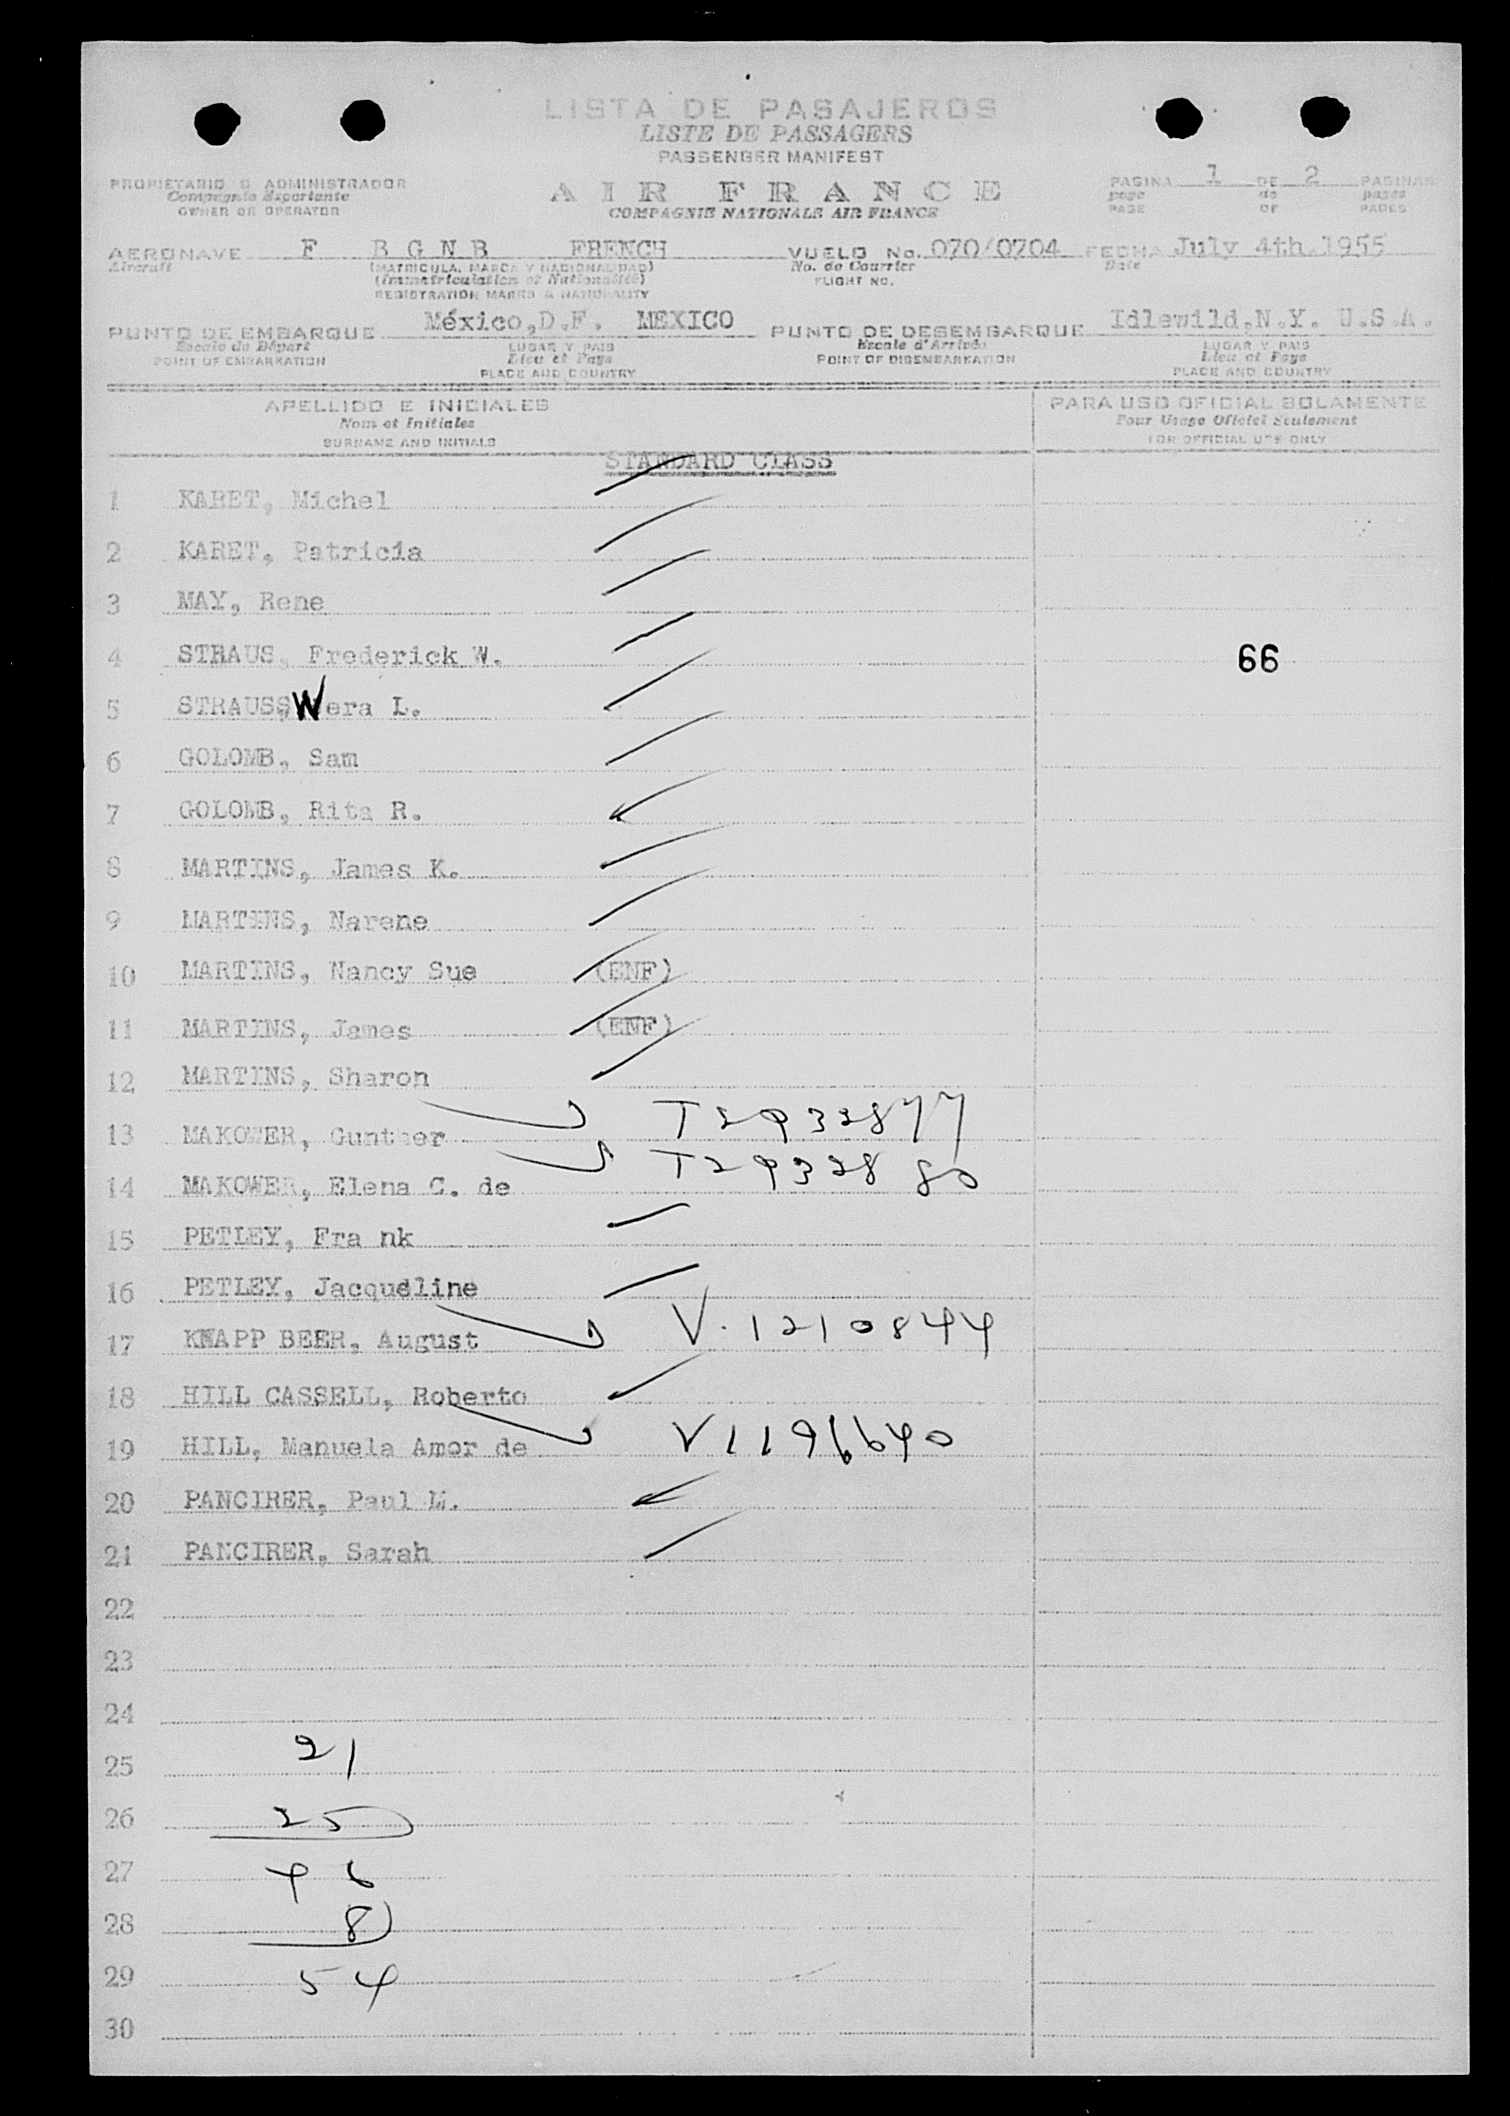 LISTA DE PASAJEROS
LISTE DE PASSAGERS
PASSENGER MANIFEST
PROPIETARIO O ADMINISTRADOR
Compagnie Exportante
OWNER OR OPERATOR
AIR FRANCE
COMPAGNIE NATIONALE AIR FRANCE
PAGINA 1 DE 2 PAGINAS
page de pages
PAGE OF PAGES
AERONAVE F BGNB FRENCH VUELO No. 070/0704 FECHA July 4th.1955
Aircraft (MATRICULA, MARCA Y NACIONALIDAD) No. de Courrier Date
(Immatriculation et Nationalité) FLIGHT NO.
REGISTRATION MARKS & NATIONALITY
PUNTO DE EMBARQUE México,D.F. MEXICO PUNTO DE DESEMBARQUE Idlewild,N.Y. U.S.A.
Escale de Départ LUGAR Y PAIS Escale d'Arrivée LUGAR Y PAIS
POINT OF EMBARKATION Lieu et Pays POINT OF DISEMBARKATION Lieu et Pays
PLACE AND COUNTRY PLACE AND COUNTRY
APELLIDO E INICIALES PARA USO OFICIAL SOLAMENTE
Nom et Initiales Pour Usage Officiel Seulement
SURNAME AND INITIALS FOR OFFICIAL USE ONLY
STANDARD CLASS
1 KARET, Michel
2 KARET, Patricia
3 MAY, Rene
4 STRAUS, Frederick W. 66
5 STRAUSS, Wera L.
6 GOLOMB, Sam
7 GOLOMB, Rita R.
8 MARTINS, James K.
9 MARTINS, Narene
10 MARTINS, Nancy Sue (ENF)
11 MARTINS, James (ENF)
12 MARTINS, Sharon
13 MAKOWER, Gunther T2932877
14 MAKOWER, Elena C. de T2932880
15 PETLEY, Fra nk
16 PETLEY, Jacqueline
17 KNAPP BEER, August V.1210844
18 HILL CASSELL, Roberto
19 HILL, Manuela Amor de V1196640
20 PANCIRER, Paul M.
21 PANCIRER, Sarah
22
23
24
25 21
26 25
27 46
28 8
29 54
30